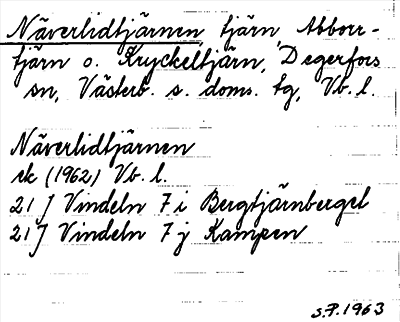 Näverlidtjärnen, tjärn Abborr-
tjärn o. Kryckeltjärn, Degerfors
sn, Västerb. s. doms. tg, Vb. l.
Näverlidtjärnen
rk (1962) Vb. l.
21 J Vindeln 7 i Bergtjärnberget
21 J Vindeln 7 j Kampen
S.P. 1963